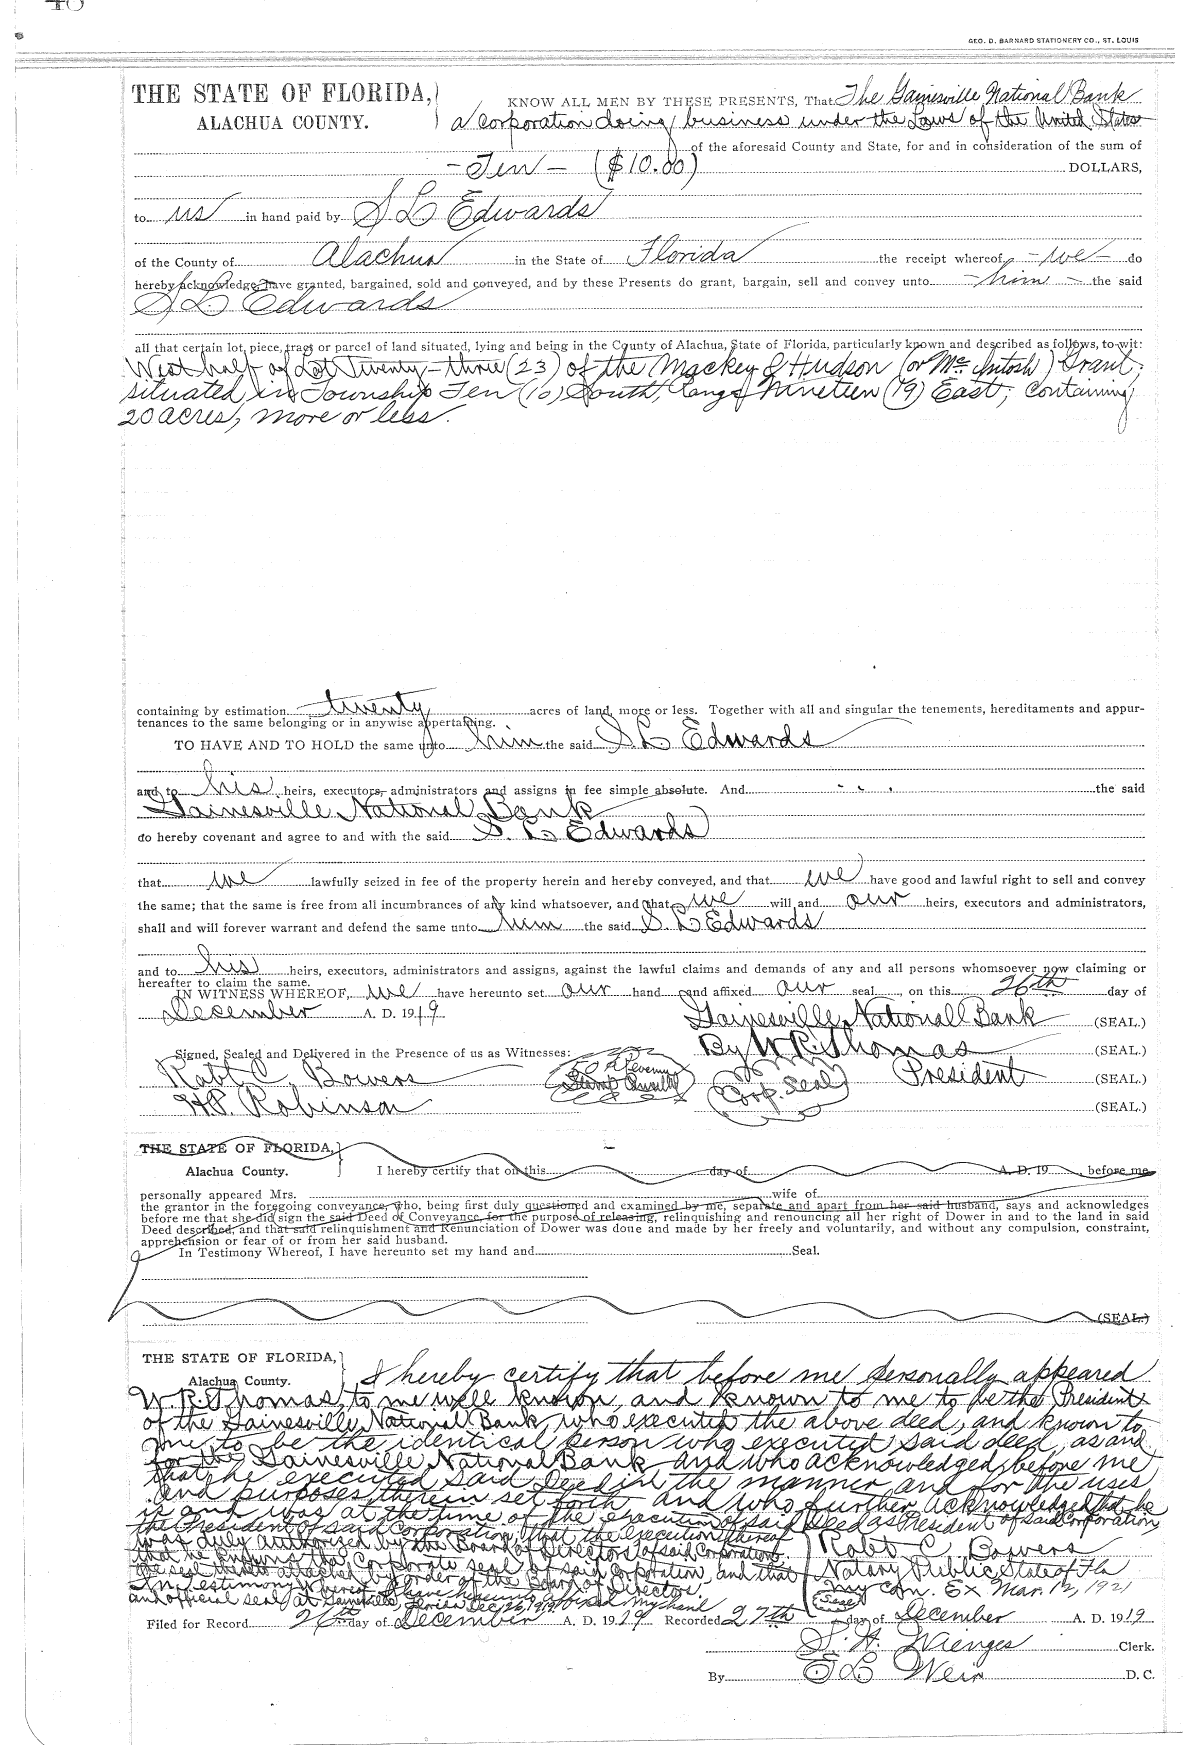 GEO. D. BARNARD STATIONERY CO., ST. LOUIS
THE STATE OF FLORIDA,
ALACHUA COUNTY.
KNOW ALL MEN BY THESE PRESENTS, That The Gainesville National Bank
a corporation doing business under the Laws of the United States
of the aforesaid County and State, for and in consideration of the sum of
- Ten - ($10.00) DOLLARS,
to us in hand paid by S L Edwards
of the County of Alachua in the State of Florida the receipt whereof - we - do
hereby acknowledge, have granted, bargained, sold and conveyed, and by these Presents do grant, bargain, sell and convey unto - him - the said
S L Edwards
all that certain lot, piece, tract or parcel of land situated, lying and being in the County of Alachua, State of Florida, particularly known and described as follows, to-wit:
West half of Lot Twenty-three (23) of the Mackey & Hudson (or Mc Intosh) Grant,
situated in Township Ten (10) South, range Nineteen (19) East, containing
20 acres, more or less.
containing by estimation twenty acres of land, more or less. Together with all and singular the tenements, hereditaments and appur-
tenances to the same belonging or in anywise appertaining.
TO HAVE AND TO HOLD the same unto him the said S L Edwards
and to his heirs, executors, administrators and assigns in fee simple absolute. And the said
Gainesville National Bank
do hereby covenant and agree to and with the said S. L Edwards
that we lawfully seized in fee of the property herein and hereby conveyed, and that we have good and lawful right to sell and convey
the same; that the same is free from all incumbrances of any kind whatsoever, and that we will and our heirs, executors and administrators,
shall and will forever warrant and defend the same unto him the said S. L Edwards
and to his heirs, executors, administrators and assigns, against the lawful claims and demands of any and all persons whomsoever now claiming or
hereafter to claim the same.
IN WITNESS WHEREOF, we have hereunto set our hand and affixed our seal, on this 26th day of
December A. D. 1919.
Gainesville National Bank (SEAL.)
By W R Thomas (SEAL.)
Signed, Sealed and Delivered in the Presence of us as Witnesses:
Robt C. Bowers
50¢ Revenue
Stamp Cancelled
Corp. Seal
President (SEAL.)
H.P. Robinson (SEAL.)
THE STATE OF FLORIDA,
Alachua County.
I hereby certify that on this day of A. D. 19 , before me
personally appeared Mrs. wife of
the grantor in the foregoing conveyance, who, being first duly questioned and examined by me, separate and apart from her said husband, says and acknowledges
before me that she did sign the said Deed of Conveyance, for the purpose of releasing, relinquishing and renouncing all her right of Dower in and to the land in said
Deed described, and that said relinquishment and Renunciation of Dower was done and made by her freely and voluntarily, and without any compulsion, constraint,
apprehension or fear of or from her said husband.
In Testimony Whereof, I have hereunto set my hand and Seal.
(SEAL.)
THE STATE OF FLORIDA,
Alachua County.
I hereby certify that before me personally appeared
W. R. Thomas, to me well known, and known to me to be the President
of the Gainesville National Bank, who executed the above deed, and known to
me to be the identical person who executed said deed, as and
for the Gainesville National Bank and who acknowledged before me
that he executed said Deed in the manner and for the uses
and purposes therein set forth, and who further acknowledged that he
is and was at the time of the execution of said Deed as President of said Corporation
the President of said Corporation, that the execution thereof
was duly authorized by the Board of Directors of said Corporation,
that he knows the corporate seal of said corporation, and that
the seal thereto attached by order of the Board of Directors.
In testimony whereof I have hereunto affixed my hand
and official seal at Gainesville, Florida Dec. 26, 1919.
Robt C Bowers
Notary Public State of Fla
my com. Ex Mar. 12, 1921
Seal
Filed for Record 26th day of December A. D. 1919 Recorded 27th day of December A. D. 1919
S. H. Wienges Clerk.
By E L Weir D. C.